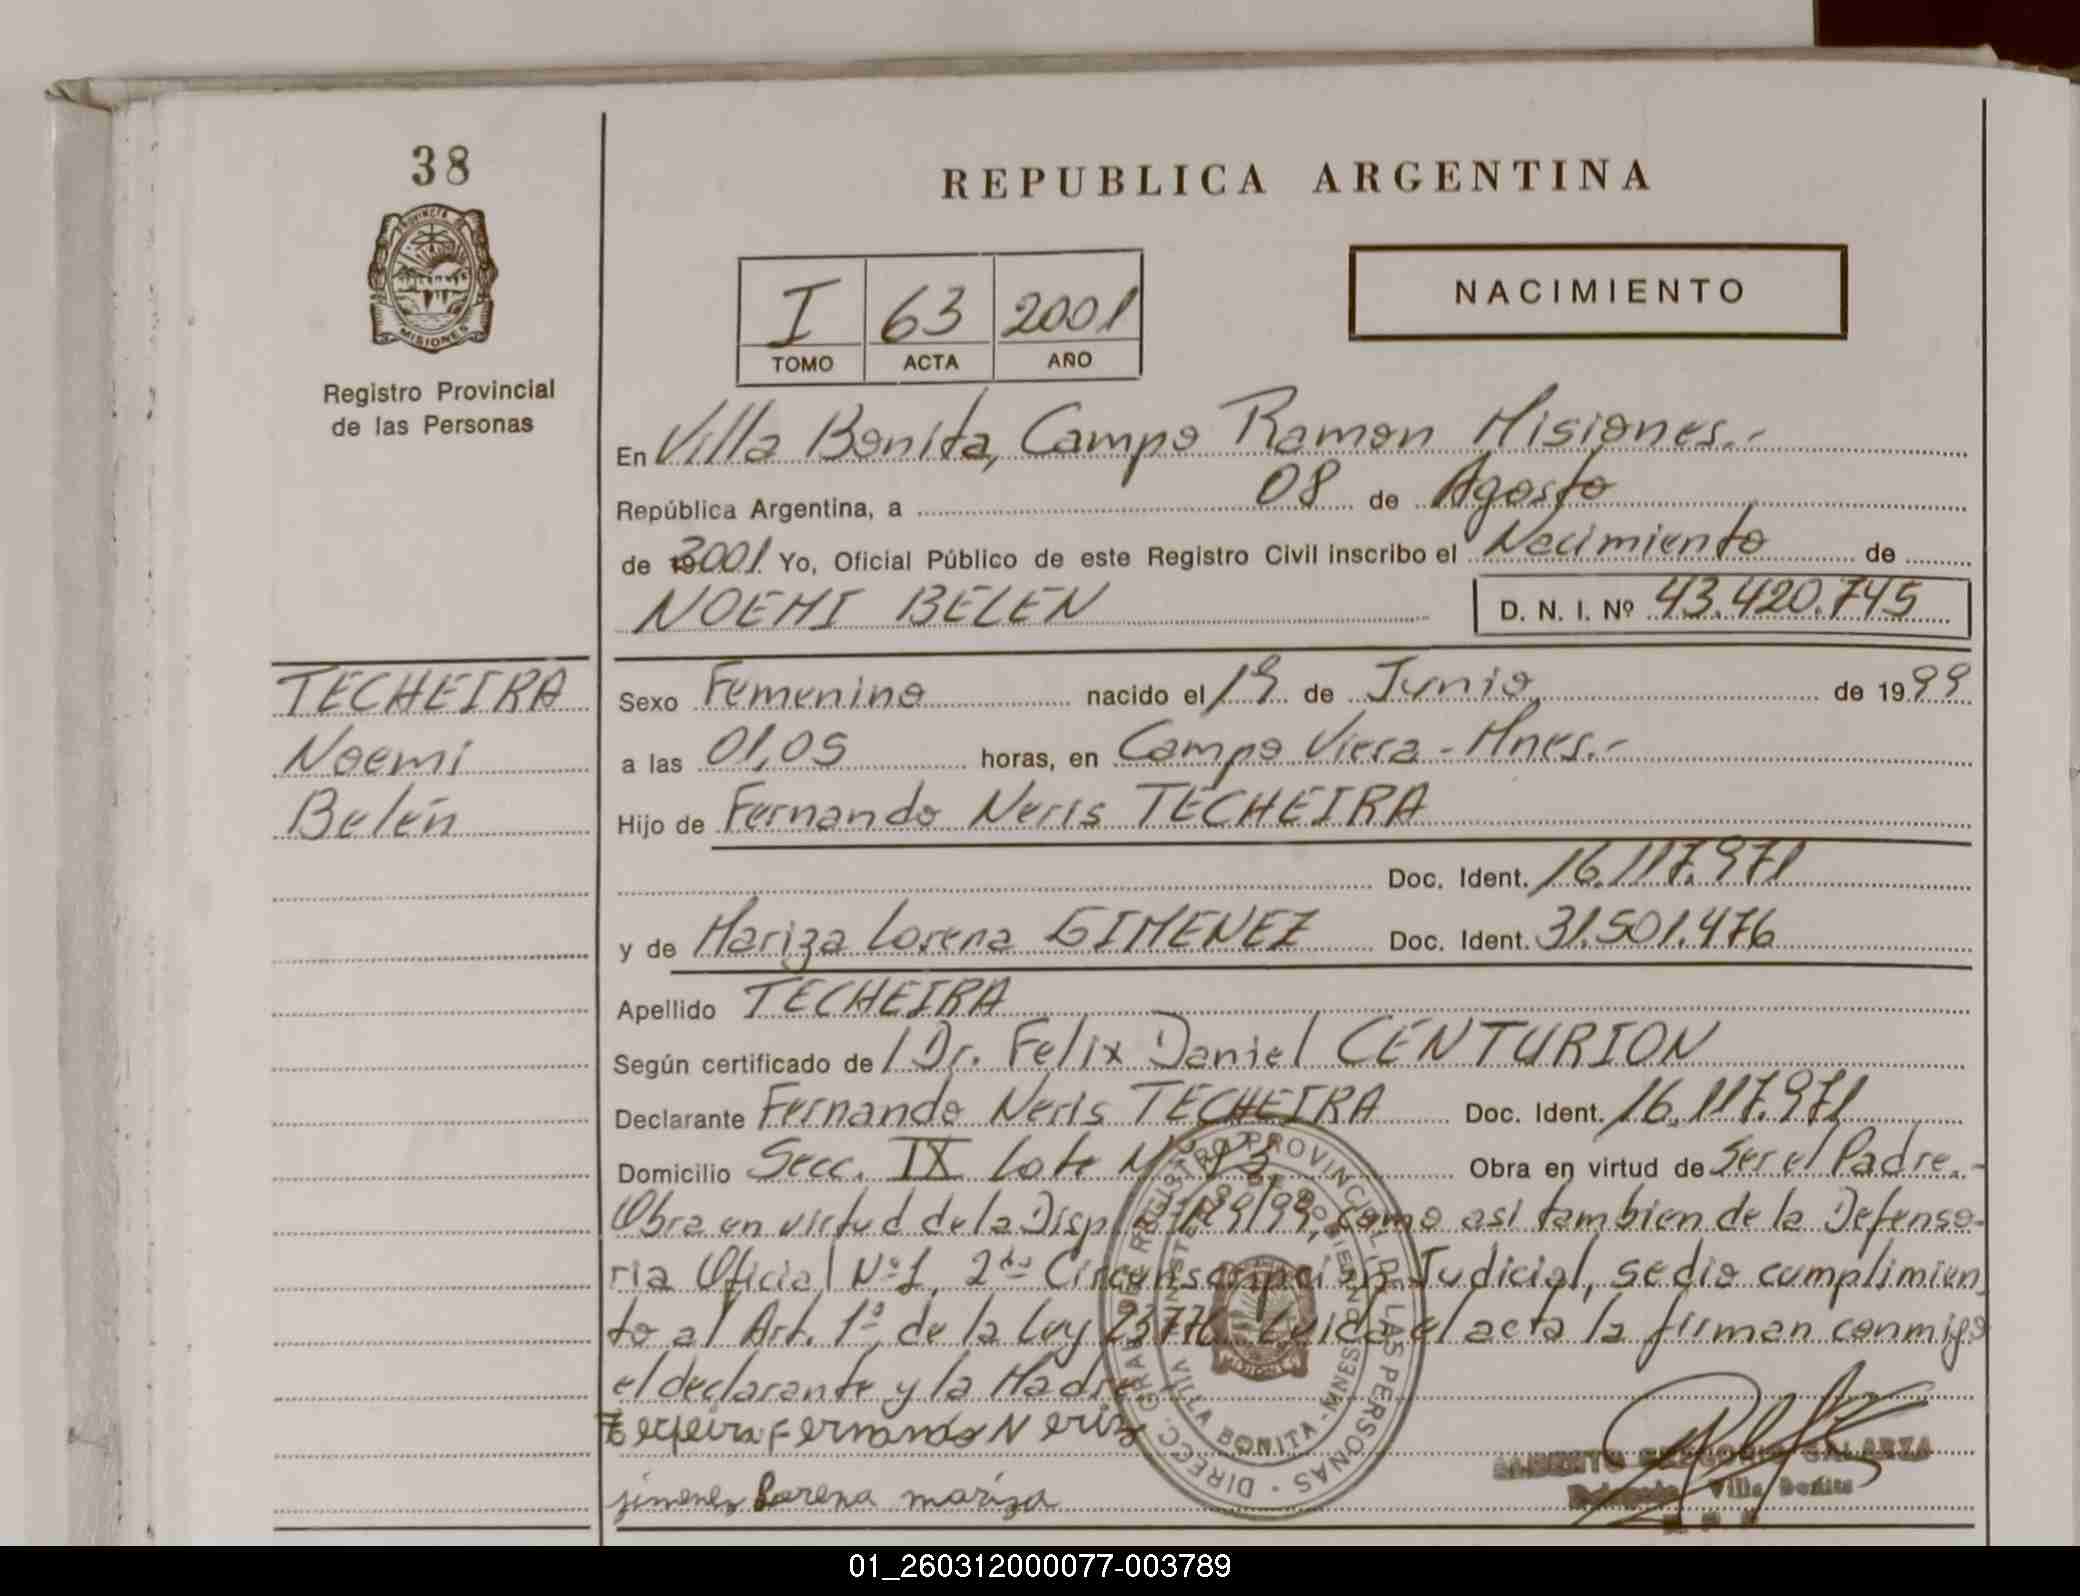 38
REPUBLICA ARGENTINA
PROVINCIA DE
MISIONES
Registro Provincial
de las Personas
I 63 2001
TOMO ACTA AÑO
NACIMIENTO
En Villa Bonita, Campo Ramon Misiones.-
República Argentina, a 08 de Agosto
de 2001 Yo, Oficial Público de este Registro Civil inscribo el Nacimiento de
NOEMI BELEN D. N. I. Nº 43.420.745
TECHEIRA
Noemi
Belén
Sexo Femenino nacido el 19 de Junio de 1999
a las 01,05 horas, en Campo Viera - Mnes.-
Hijo de Fernando Neris TECHEIRA
Doc. Ident. 16.117.971
y de Mariza Lorena GIMENEZ Doc. Ident. 31.501.476
Apellido TECHEIRA
Según certificado de / Dr. Felix Daniel CENTURION
Declarante Fernando Neris TECHEIRA Doc. Ident. 16.117.971
Domicilio Secc. IX Lote Nº 93 Obra en virtud de Ser el Padre.-
Obra en virtud de la Disp. 1189/99, como asi tambien de la Defenso-
ria Oficial Nº 1, 2da Circunscripción Judicial, se dio cumplimien
to al Art. 1º de la Ley 23776. Leida el acta la firman conmigo
el declarante y la Madre
Fernando Neris
jimenez Lorena mariza
DIRECC. GRAL. DE REGISTRO PROVINCIAL DE LAS PERSONAS
VILLA BONITA - MNES
ALBERTO GREGORIO GALARZA
Villa Bonita
01_260312000077-003789